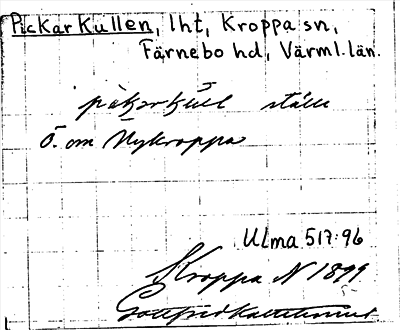 Pickarkullen, lht, Kroppa sn,
Färnebo hd, Värml. län.
ställe
Ö. om Nykroppa
Ulma 517:96
Kroppa N 1899